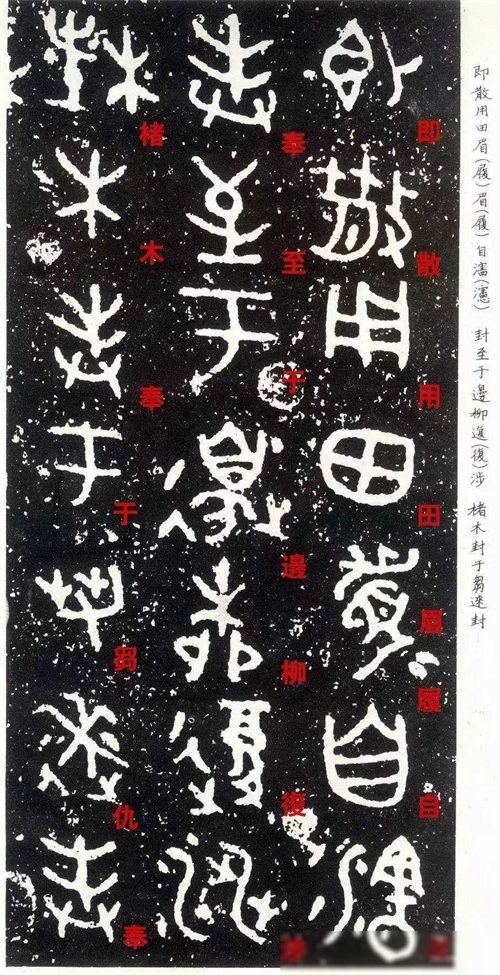 即散用田眉(履)眉(履)自瀗(瀗) 封至于邊柳復(復)涉 楮木封于芻逨封
即散用田眉履自
奉至于邊柳復
楮木奉于芻仇奉